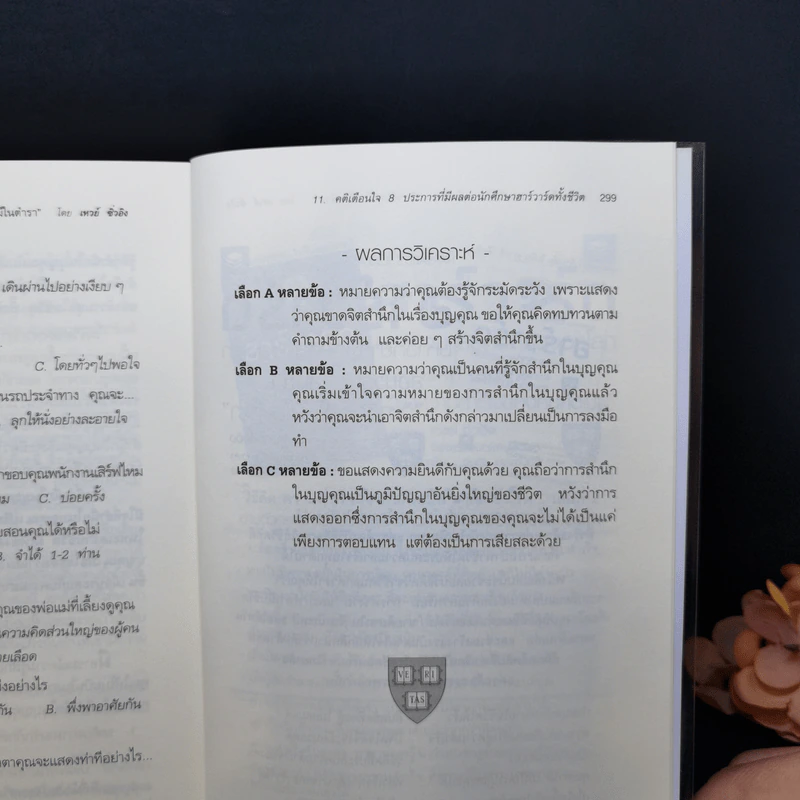 ในตำรา" โดย เหวย์ ซิ่วอิง
เดินผ่านไปอย่างเงียบ ๆ
C. โดยทั่วๆไปพอใจ
นรถประจำทาง คุณจะ....
ลุกให้นั่งอย่างละอายใจ
ขอบคุณพนักงานเสิร์ฟไหม
C. บ่อยครั้ง
สอนคุณได้หรือไม่
3. จำได้ 1-2 ท่าน
คุณของพ่อแม่ที่เลี้ยงดูคุณ
ความคิดส่วนใหญ่ของผู้คน
ยเลือด
อย่างไร
กัน B. พึ่งพาอาศัยกัน
ตาคุณจะแสดงท่าทีอย่างไร...
11. คติเตือนใจ 8 ประการที่มีผลต่อนักศึกษาฮาร์วาร์ดทั้งชีวิต 299
- ผลการวิเคราะห์ -
เลือก A หลายข้อ : หมายความว่าคุณต้องรู้จักระมัดระวัง เพราะแสดง
ว่าคุณขาดจิตสำนึกในเรื่องบุญคุณ ขอให้คุณคิดทบทวนตาม
คำถามข้างต้น และค่อย ๆ สร้างจิตสำนึกขึ้น
เลือก B หลายข้อ : หมายความว่าคุณเป็นคนที่รู้จักสำนึกในบุญคุณ
คุณเริ่มเข้าใจความหมายของการสำนึกในบุญคุณแล้ว
หวังว่าคุณจะนำเอาจิตสำนึกดังกล่าวมาเปลี่ยนเป็นการลงมือ
ทำ
เลือก C หลายข้อ : ขอแสดงความยินดีกับคุณด้วย คุณถือว่าการสำนึก
ในบุญคุณเป็นภูมิปัญญาอันยิ่งใหญ่ของชีวิต หวังว่าการ
แสดงออกซึ่งการสำนึกในบุญคุณของคุณจะไม่ได้เป็นแค่
เพียงการตอบแทน แต่ต้องเป็นการเสียสละด้วย
VE RI
TAS